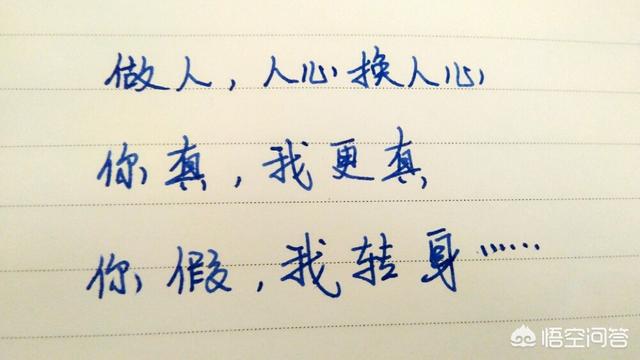 做人，人心换人心
你真，我更真
你假，我转身……
悟空问答